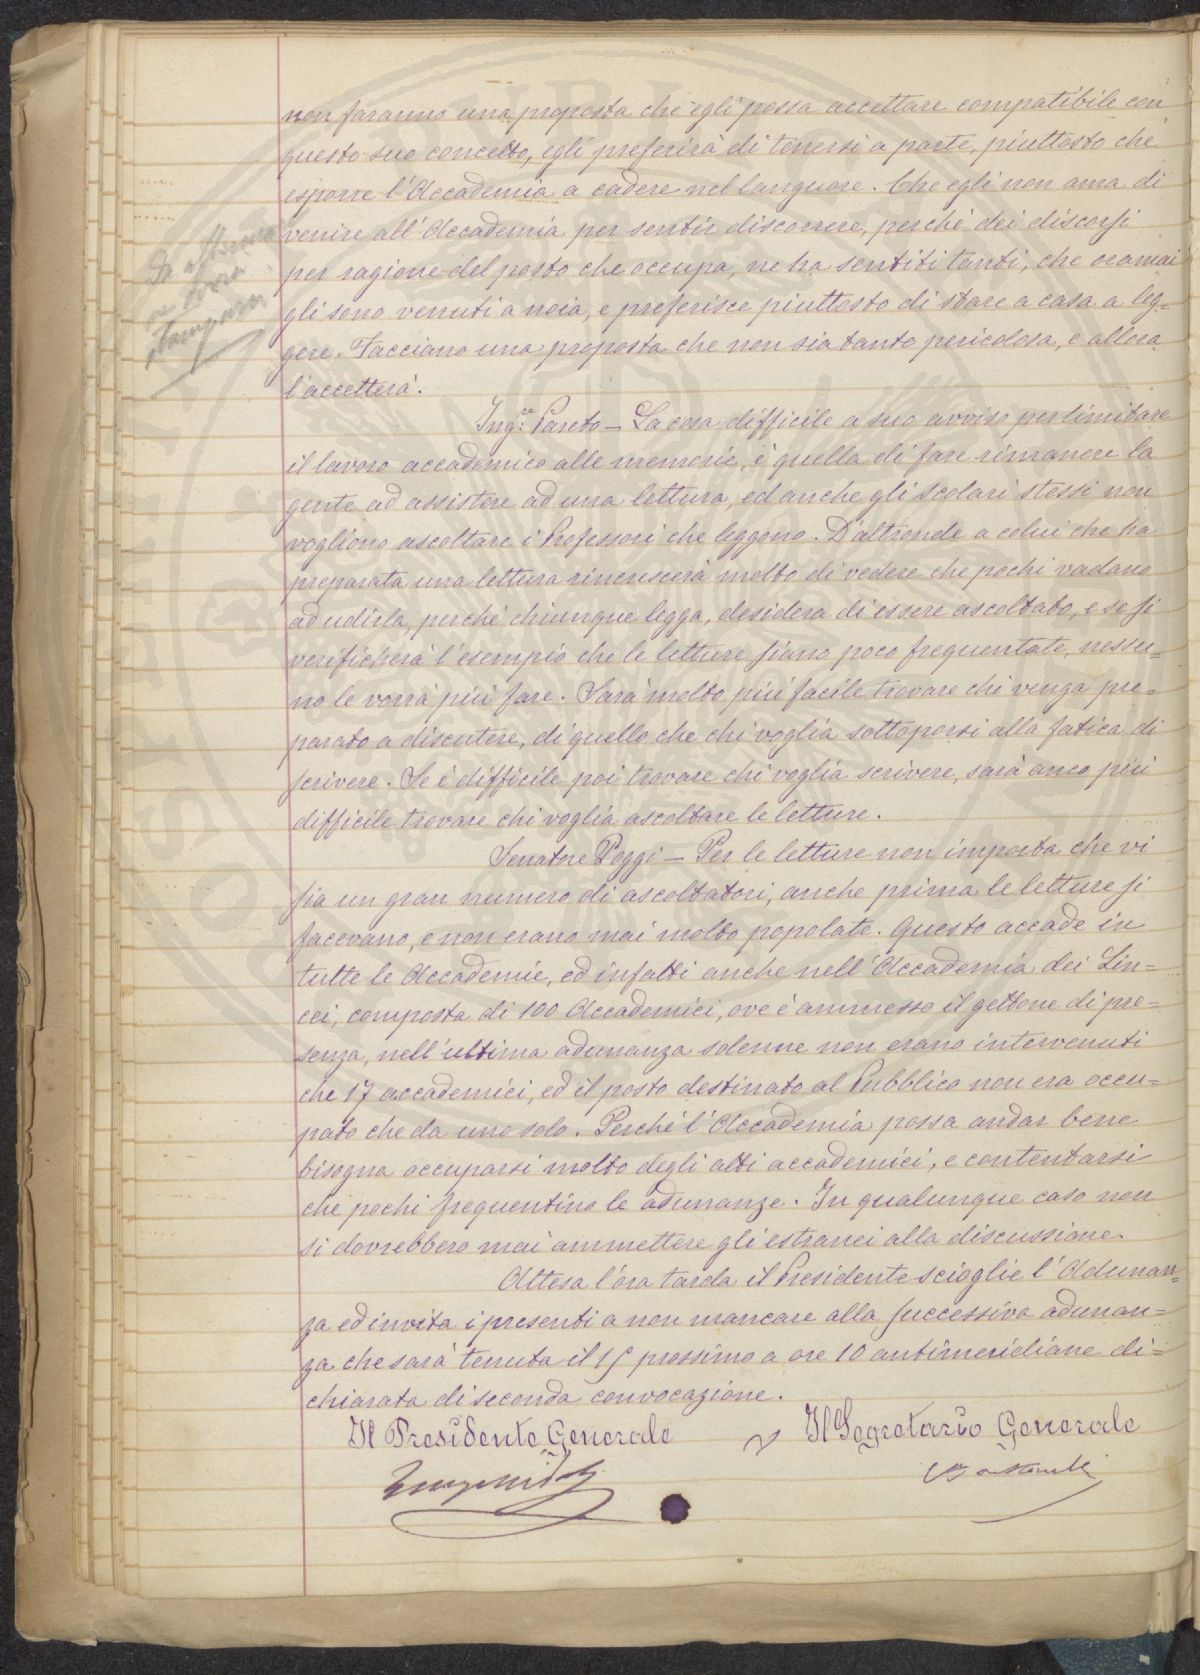 non faranno una proposta che egli possa accettare compatibile con
questo suo concetto, egli preferirà di tenersi a parte, piuttosto che
esporre l'Accademia a cadere nel languore. Che egli non ama di
venire all'Accademia per sentir discorrere, perchè dei discorsi
per ragione del posto che occupa, ne ha sentiti tanti, che oramai
gli sono venuti a noia, e preferisce piuttosto di stare a casa a leg=
gere. Facciano una proposta che non sia tanto pericolosa, e allora
l'accetterà.
Ing.re Pareto — La cosa difficile a suo avviso per limitare
il lavoro accademico alle memorie, è quella di fare rimanere la
gente ad assistere ad una lettura, ed anche gli scolari stessi non
vogliono ascoltare i Professori che leggono. D'altronde a colui che ha
preparata una lettura rincrescerà molto di vedere che pochi vadano
ad udirla, perchè chiunque legga, desidera di essere ascoltato, e se si
verificherà l'esempio che le letture siano poco frequentate, nessu=
no le vorrà più fare. Sarà molto più facile trovare chi venga pre=
parato a discutere, di quello che chi voglia sottoporsi alla fatica di
scrivere. Se è difficile poi trovare chi voglia scrivere, sarà anco più
difficile trovare chi voglia ascoltare le letture.
Senatore Poggi — Per le letture non importa che vi
sia un gran numero di ascoltatori, anche prima le letture si
facevano, e non erano mai molto popolate. Questo accade in
tutte le Accademie, ed infatti anche nell'Accademia dei Lin=
cei, composta di 100 Accademici, ove è ammesso il gettone di pre=
senza, nell'ultima adunanza solenne non erano intervenuti
che 17 accademici, ed il posto destinato al Pubblico non era occu=
pato che da uno solo. Perchè l'Accademia possa andar bene
bisogna occuparsi molto degli atti accademici, e contentarsi
che pochi frequentino le adunanze. In qualunque caso non
si dovrebbero mai ammettere gli estranei alla discussione.
Attesa l'ora tarda il Presidente scioglie l'Adunan=
za ed invita i presenti a non mancare alla successiva adunan=
za che sarà tenuta il 15 prossimo a ore 10 antimeridiane di=
chiarata di seconda convocazione.
Il Presidente Generale
Il Segretario Generale